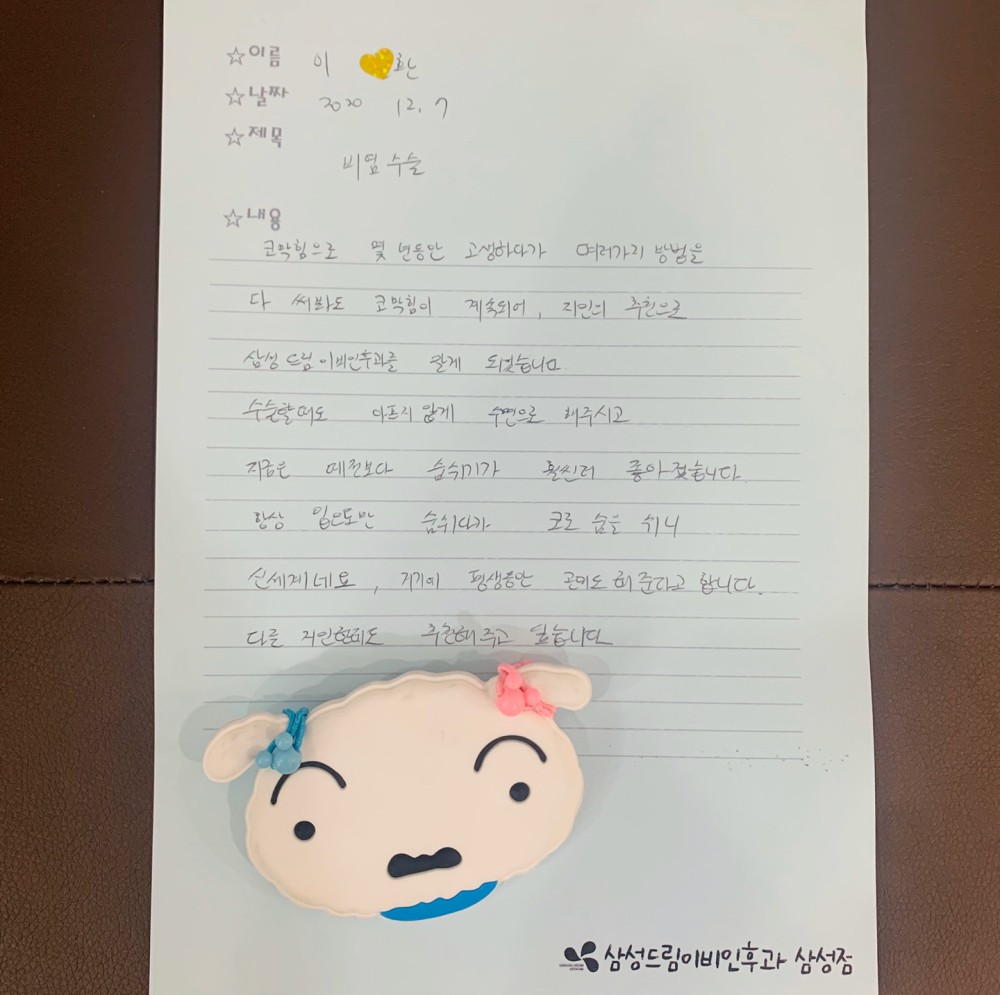 ☆이름 이 환
☆날짜 2020 12. 7
☆제목
비염 수술
☆내용
코막힘으로 몇 년동안 고생하다가 여러가지 방법을
다 써봐도 코막힘이 계속되어, 지인의 추천으로
삼성드림이비인후과를 알게 되었습니다.
수술할때도 아프지 않게 수면으로 해주시고
지금은 예전보다 숨쉬기가 훨씬더 좋아졌습니다.
항상 입으로만 숨쉬다가 코로 숨을 쉬니
신세계네요, 거기에 평생동안 관리도 해 준다고 합니다.
다른 지인한테도 추천해 주고 싶습니다
삼성드림이비인후과 삼성점